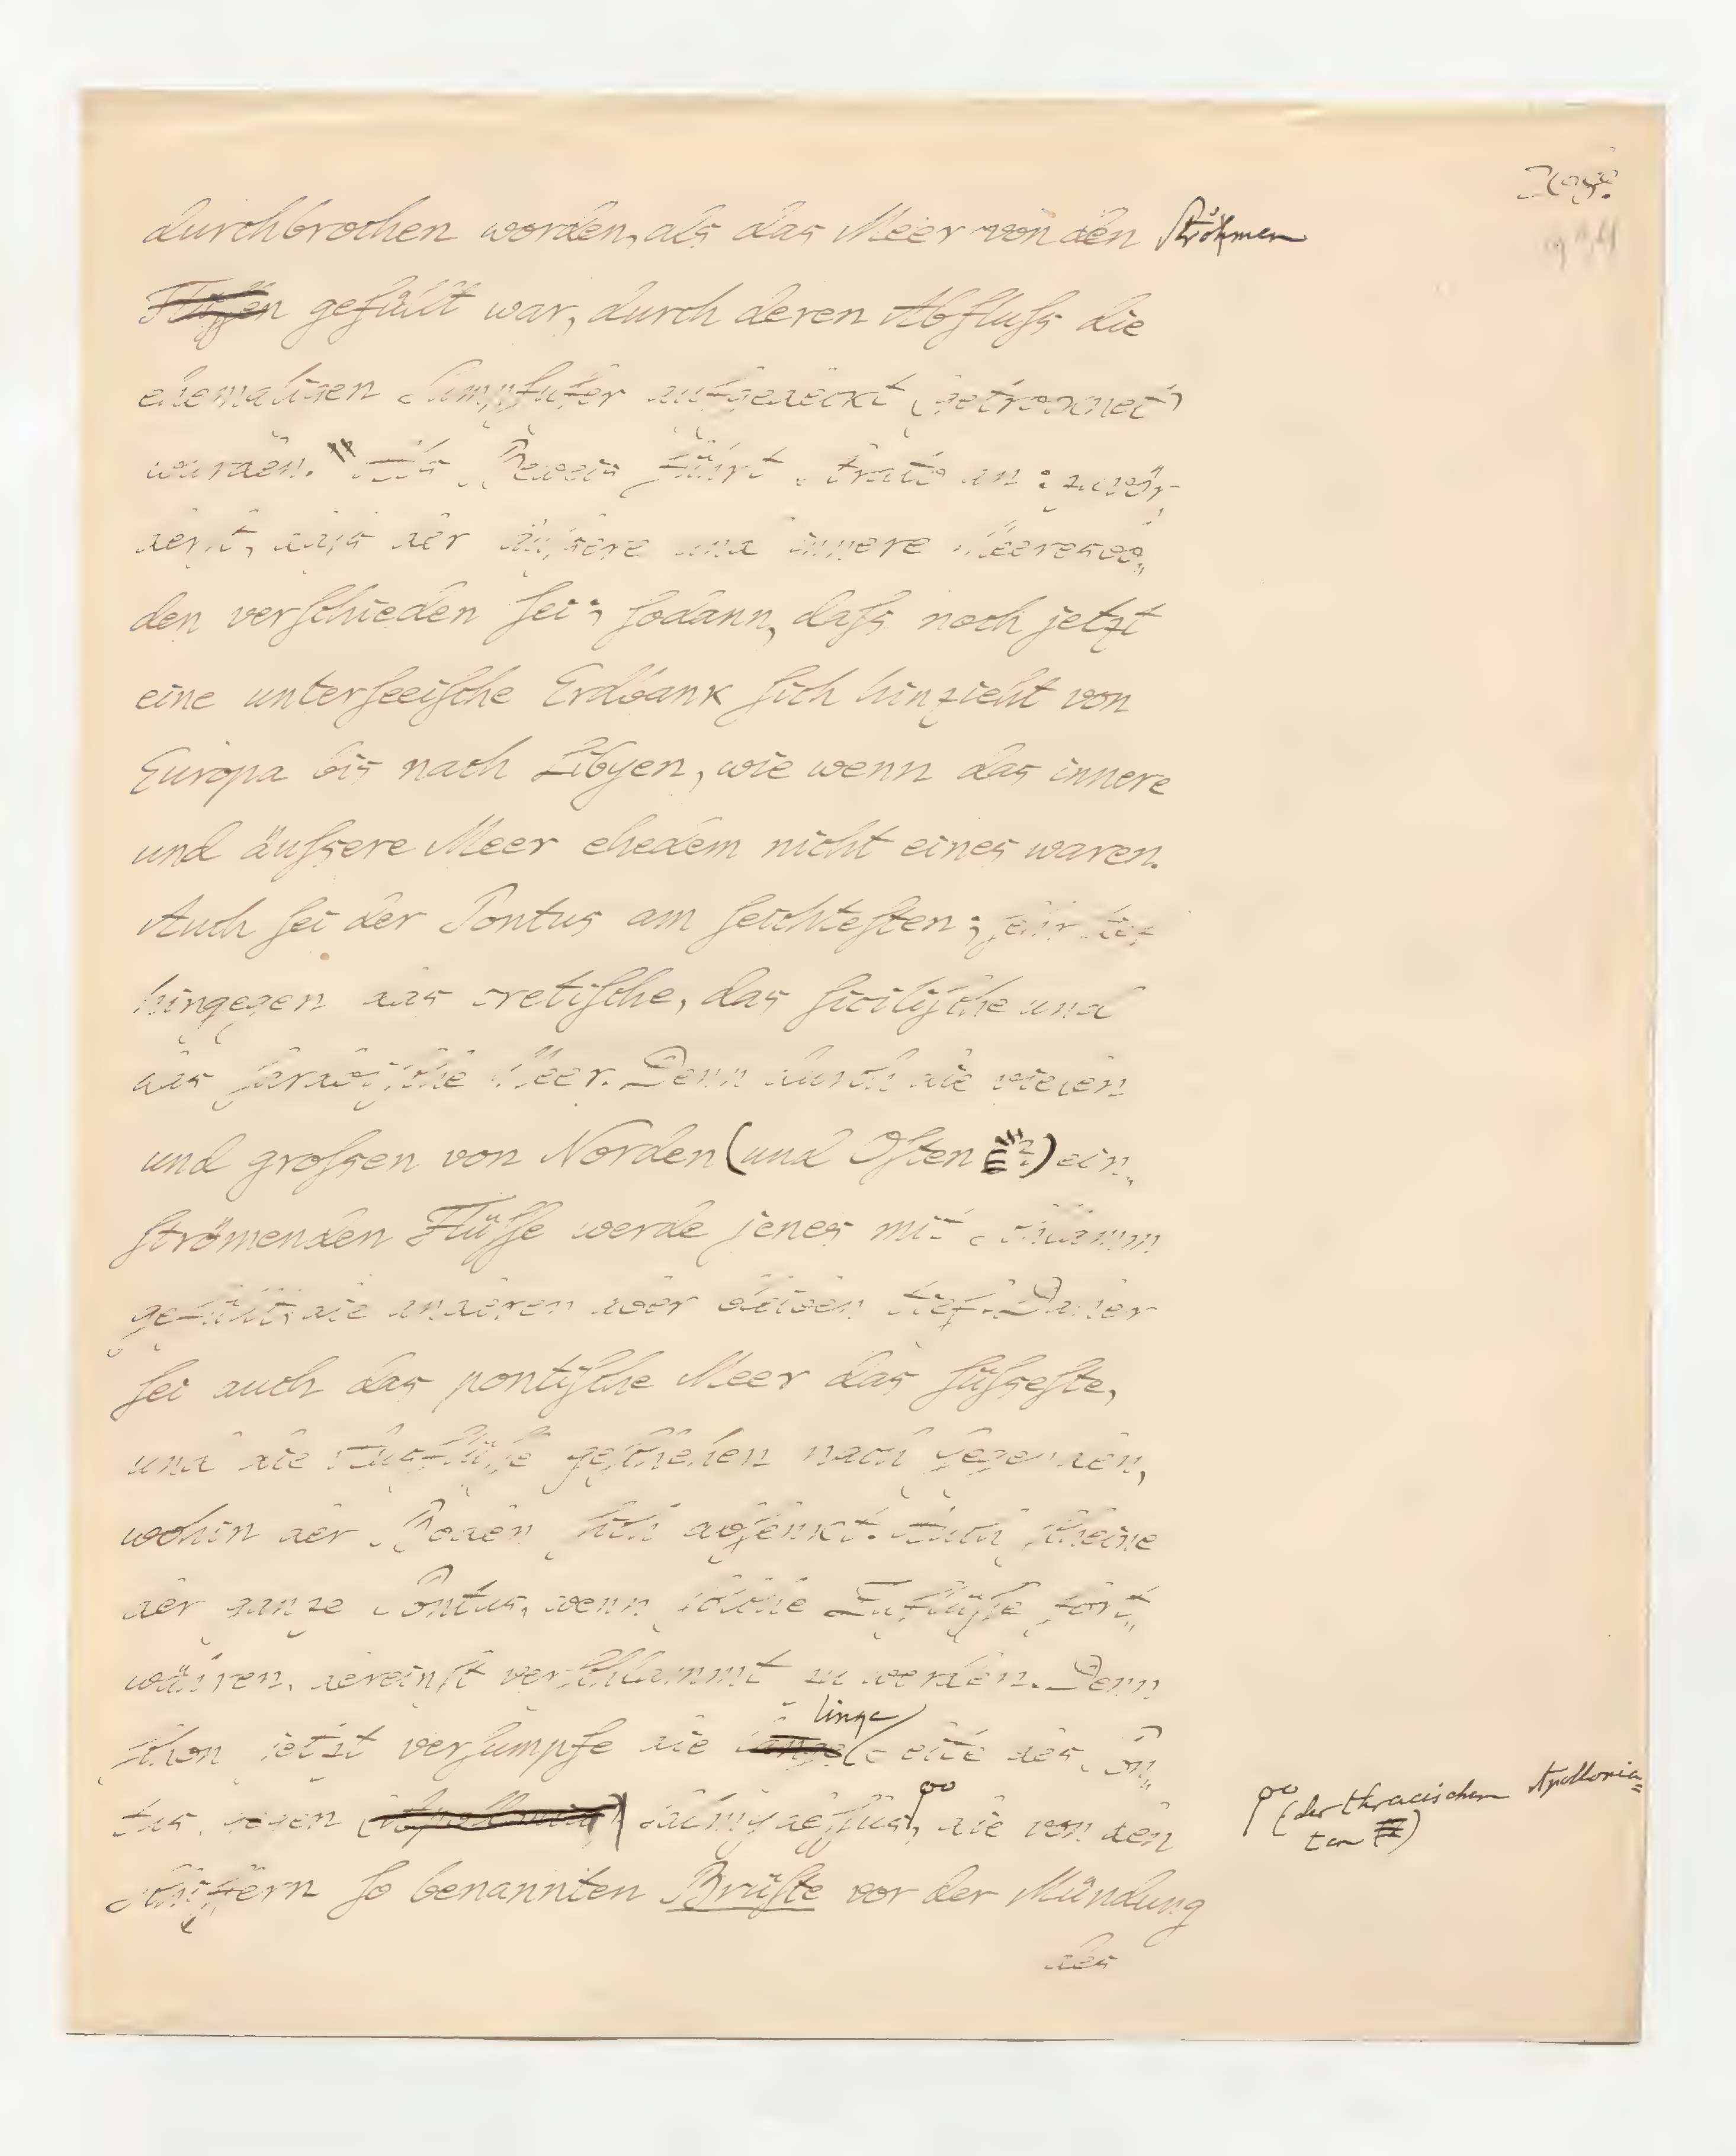 durchbrochen worden, als das Meer von den Ströhmen
Flüssen gefüllt war, durch deren Abfluſs die
ehemaligen Sumpfufer aufgedeckt (getrocknet)
wurden." Als Beweis führt Strato an: zuvör-
derſt, daſs der äuſsere und innere Meeresbo„
den verſchieden ſei; ſodann, daſs noch jetzt
eine unterſeeiſche Erdbank ſich hinzieht von
Europa bis nach Libyen, wie wenn das innere
und äuſsere Meer ehedem nicht eines waren.
Auch ſei der Pontus am ſeichteſten; ſehr tief
hingegen das cretiſche, das ſiciliſche und
das ſardoiſche Meer. Denn durch die vielen
und groſsen von Norden (und Oſten) ein„
ſtrömenden Flüſſe werde jenes mit Schlamm
gefüllt, die anderen aber bleiben tief. Daher
ſei auch das pontiſche Meer das ſüſseſte,
und die Ausflüſſe geſchehen nach Gegenden,
wohin der Boden ſich abſenkt. Auch ſcheine
der ganze Pontus, wenn ſolche Zuflüſſe fort„
währen, dereinſt verſchlammt zu werden. Denn
linke
ſchon jetzt verſumpfe die Seite des Pon„
tus, gegen (Apollonia) Salmydeſſus, die von den
(der thracischen Apollonia=
ten)
Schiffern ſo benannten Brüſte vor der Mündung
des